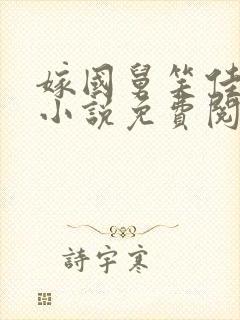 嫁國舅笑佳
小說免費閱
詩宇寒